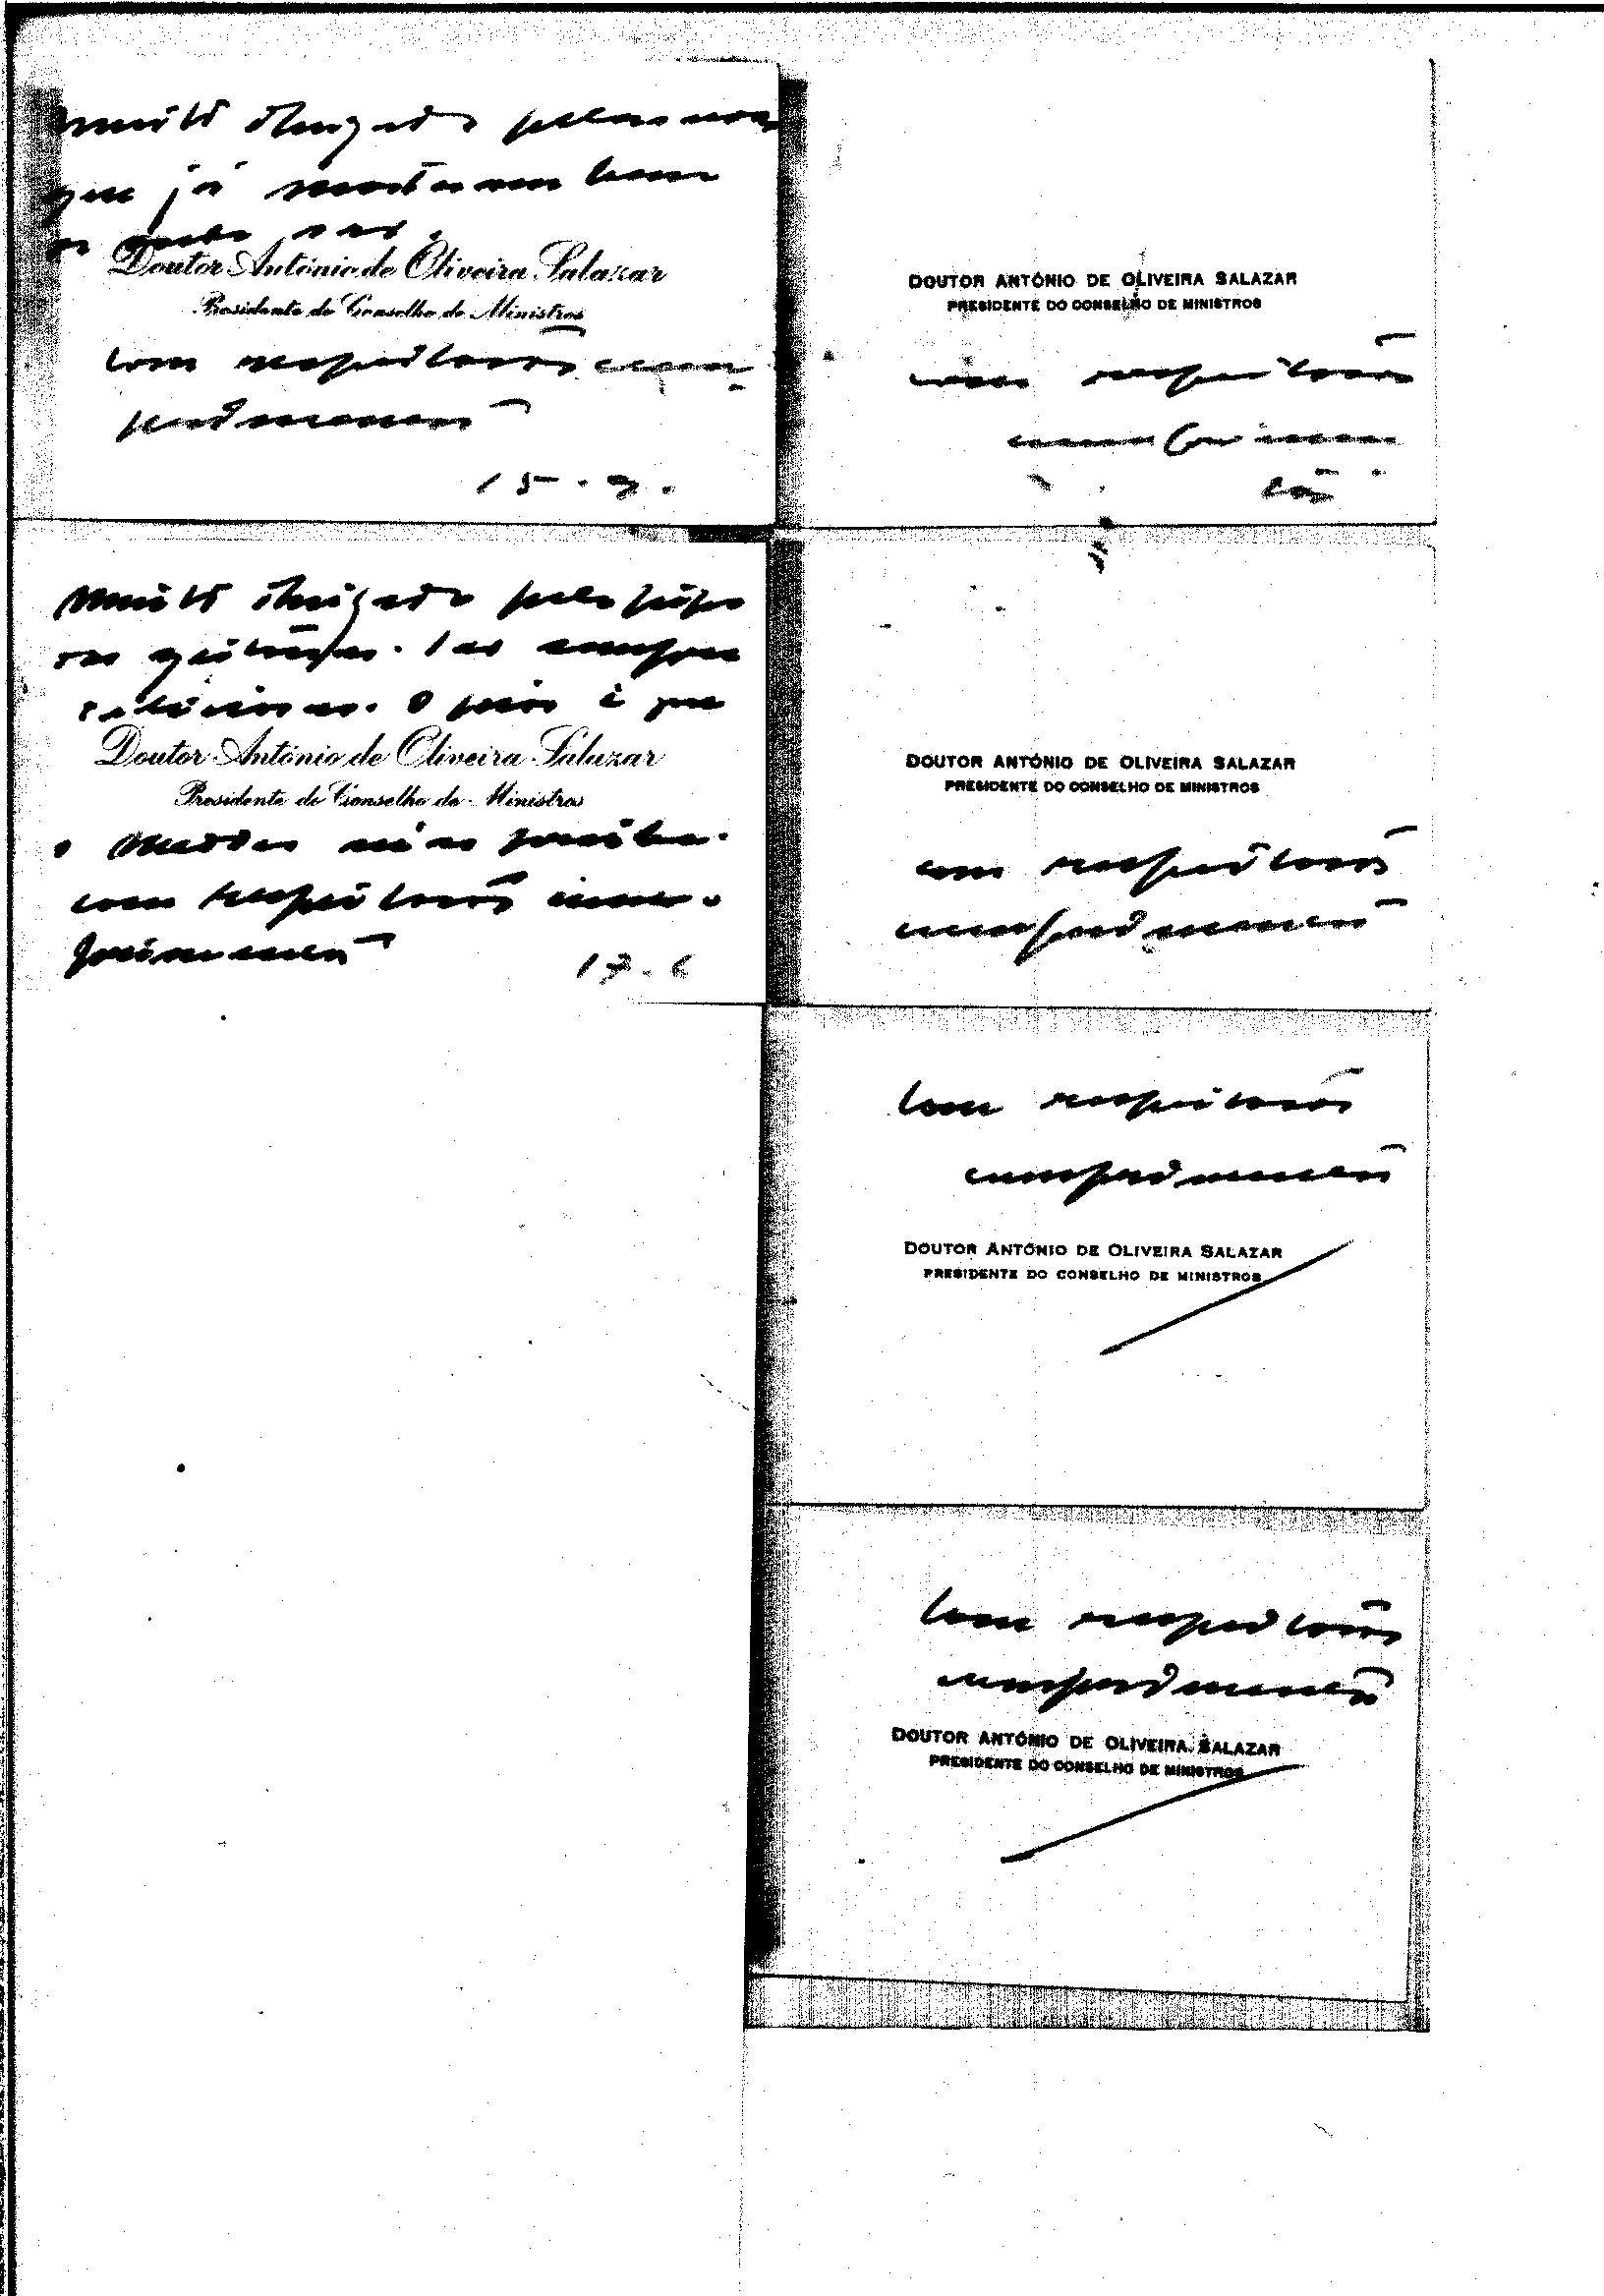 muito obrigado pelas
que já
Doutor António de Oliveira Salazar
Presidente do Conselho de Ministros
com respeitosos cum-
primentos
15.7.
muito obrigado pelo
O pior é que
Doutor António de Oliveira Salazar
Presidente do Conselho de Ministros
o médico não
com respeitosos cum-
primentos
17.6
DOUTOR ANTÓNIO DE OLIVEIRA SALAZAR
PRESIDENTE DO CONSELHO DE MINISTROS
com respeitosos
cumprimen-
tos
DOUTOR ANTÓNIO DE OLIVEIRA SALAZAR
PRESIDENTE DO CONSELHO DE MINISTROS
com respeitosos
cumprimentos
com respeitosos
cumprimentos
DOUTOR ANTÓNIO DE OLIVEIRA SALAZAR
PRESIDENTE DO CONSELHO DE MINISTROS
com respeitosos
cumprimentos
DOUTOR ANTÓNIO DE OLIVEIRA SALAZAR
PRESIDENTE DO CONSELHO DE MINISTROS